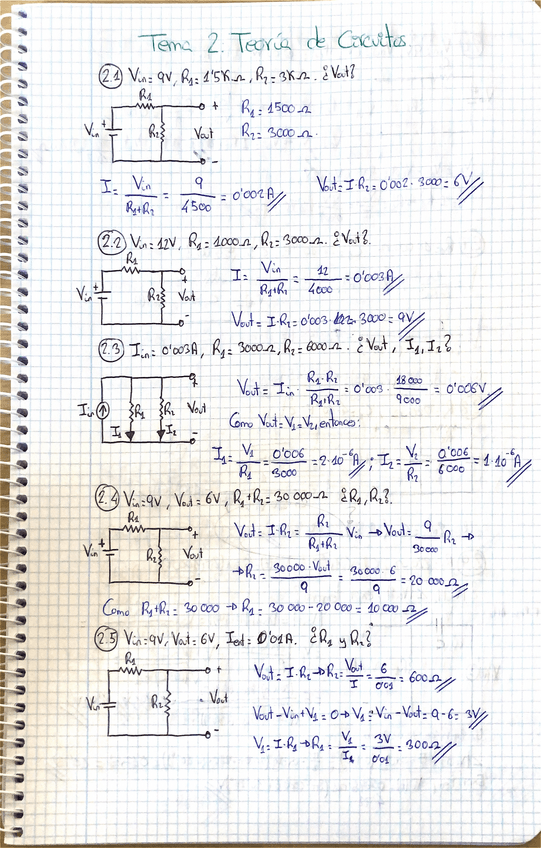 Tema 2. Teoría de Circuitos
2.1 Vin = 9V, R1 = 1'5KΩ, R2 = 3KΩ. ¿Vout?
R1
Vin + R2 Vout + -
R1 = 1500Ω
R2 = 3000Ω.
I = Vin/(R1+R2) = 9/4500 = 0'002A Vout = I·R2 = 0'002·3000 = 6V
2.2 Vin = 12V, R1 = 1000Ω, R2 = 3000Ω. ¿Vout?
R1
Vin + R2 Vout + -
I = Vin/(R1+R2) = 12/4000 = 0'003A
Vout = I·R2 = 0'003·3000 = 9V
2.3 Iin = 0'003A, R1 = 3000Ω, R2 = 6000Ω. ¿Vout, I1, I2?
Iin R1 R2 Vout + -
I1 I2
Vout = Iin · (R1·R2)/(R1+R2) = 0'003 · 18000/9000 = 0'006V
Como Vout = V1 = V2, entonces:
I1 = V1/R1 = 0'006/3000 = 2·10⁻⁶A ; I2 = V2/R2 = 0'006/6000 = 1·10⁻⁶A
2.4 Vin = 9V, Vout = 6V, R1+R2 = 30000Ω ¿R1, R2?
R1
Vin + R2 Vout + -
Vout = I·R2 = R2/(R1+R2) Vin → Vout = 9/30000 R2 →
→ R2 = 30000·Vout/9 = 30000·6/9 = 20 000Ω
Como R1+R2 = 30 000 → R1 = 30 000 - 20 000 = 10 000Ω
2.5 Vin = 9V, Vout = 6V, Iout = 0'01A. ¿R1 y R2?
R1
Vin + R2 Vout + -
Vout = I·R2 → R2 = Vout/I = 6/0'01 = 600Ω
Vout - Vin + V1 = 0 → V1 = Vin - Vout = 9 - 6 = 3V
V1 = I·R1 → R1 = V1/I1 = 3V/0'01 = 300Ω